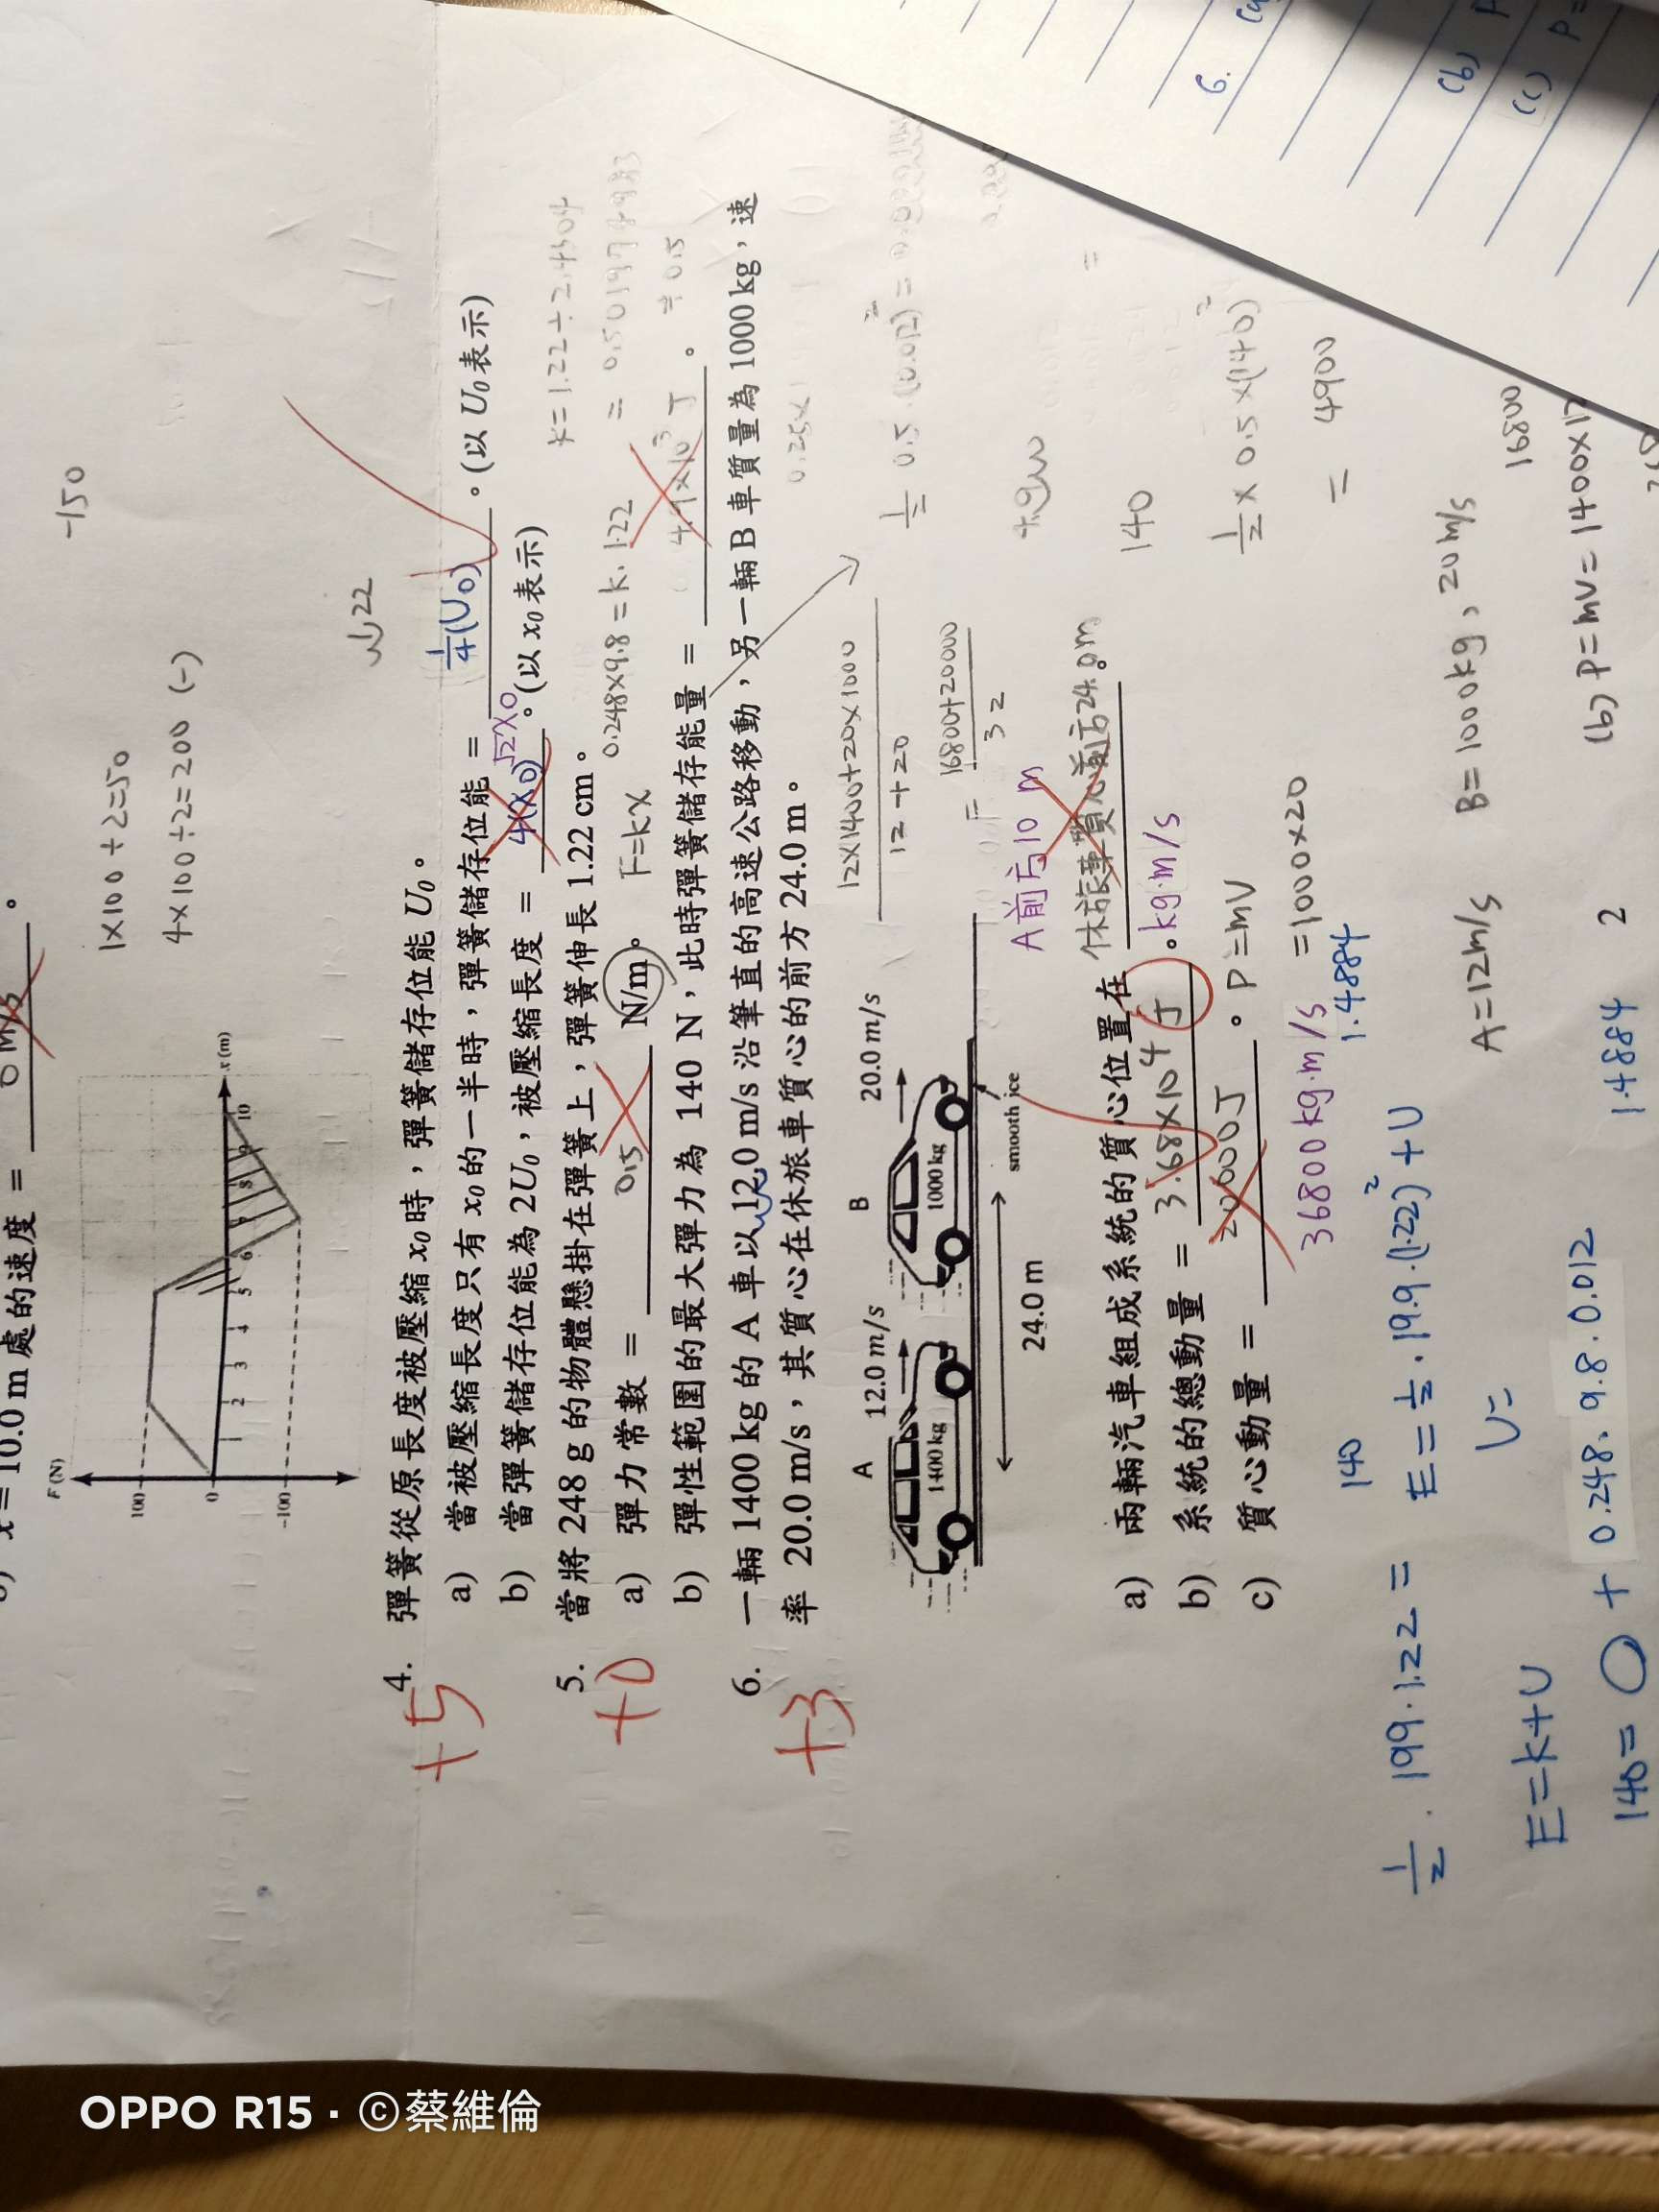 x = 10.0 m 處的速度 =
。
F (N)
100
0
-100
1
2
3
4
5
6
7
8
9
10
x (m)
-150
1x100÷2=50
4x100÷2=200 (-)
+5
4. 彈簧從原長度被壓縮 x₀ 時，彈簧儲存位能 U₀。
a) 當被壓縮長度只有 x₀ 的一半時，彈簧儲存位能 = ¼(U₀) 。(以 U₀ 表示)
b) 當彈簧儲存位能為 2U₀，被壓縮長度 = 4(x₀) √2x₀ 。(以 x₀ 表示)
+0
5. 當將 248 g 的物體懸掛在彈簧上，彈簧伸長 1.22 cm。
a) 彈力常數 = 0.5 N/m。 F=kx
0.248x9.8=k.1.22
k=1.22÷2.4304
= 0.501974983
≒0.5
b) 彈性範圍的最大彈力為 140 N，此時彈簧儲存能量 = 4.9x10³J 。
+3
6. 一輛 1400 kg 的 A 車以 12.0 m/s 沿筆直的高速公路移動，另一輛 B 車質量為 1000 kg，速
率 20.0 m/s，其質心在休旅車質心的前方 24.0 m。
A
12.0 m/s
B
20.0 m/s
1400 kg
1000 kg
smooth ice
24.0 m
12x1400+20x1000
12+20
= 16800+20000
32
½ 0.5.(0.012)²
140
½x0.5x(140)²
= 4900
A前方10 m
a) 兩輛汽車組成系統的質心位置在 休旅車質心前方24.0m。
b) 系統的總動量 = 3.68x10⁴ J 。kg.m/s
c) 質心動量 = 20000J 。 P=mV
=1000x20
36800 kg.m/s
1.4884
140
½.199.1.22=
E=½.19.9.(1.22)²+U
U=
E=k+U
140= 0 + 0.248.9.8.0.012
1.4884
2
A=12m/s
B=1000kg, 20m/s
16800
(b) P=mV=1400x12
6.
(b)
(c) P=
OPPO R15 · ©蔡維倫